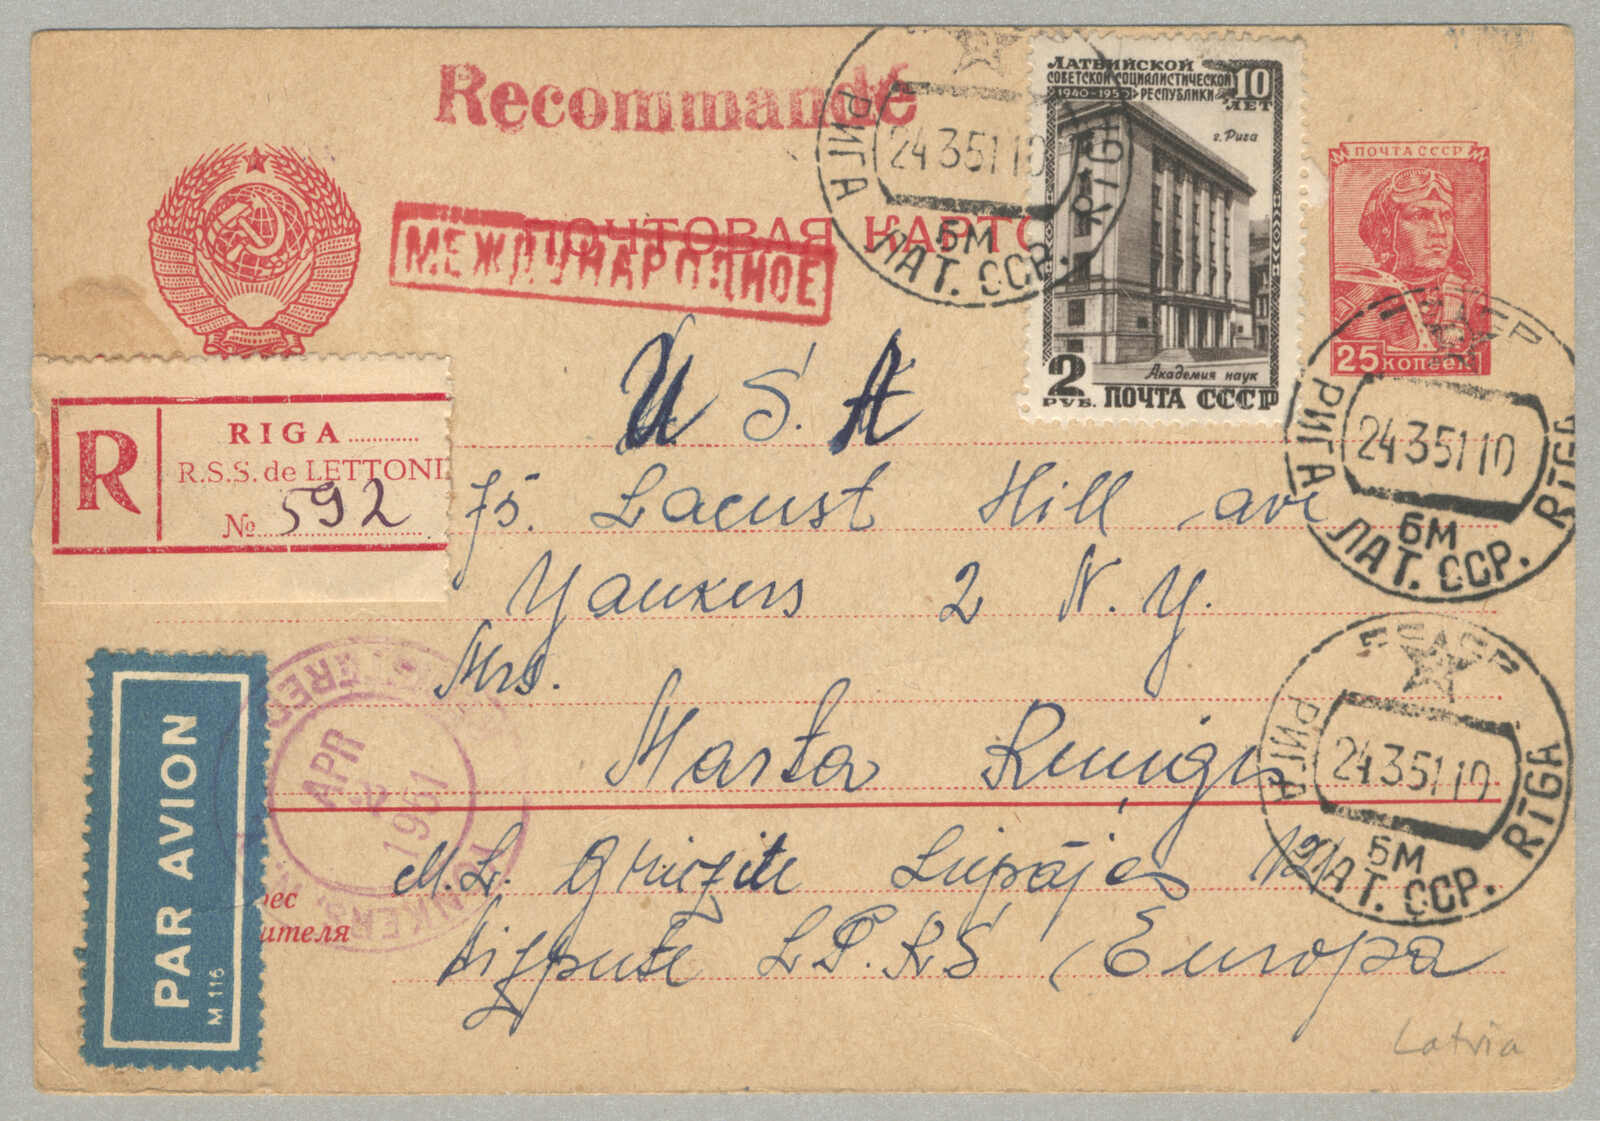 Recommandé
ПОЧТОВАЯ КАРТО
МЕЖДУНАРОДНОЕ
ЛАТВИЙСКОЙ
СОВЕТСКОЙ СОЦИАЛИСТИЧЕСКОЙ
1940-1950 РЕСПУБЛИКИ
10 ЛЕТ
г. Рига
Академия наук
2 РУБ. ПОЧТА СССР
ПОЧТА СССР
25 КОПЕЕК
РИГА 24 3 51 10 RĪGA
6М
ЛАТ. ССР.
U. S. A
R
RIGA
R.S.S. de LETTONI
№ 592
75. Lacust Hill ave
Yankers 2 N. Y.
Mrs.
Marta
РИГА 24 3 51 10 RĪGA
6М
ЛАТ. ССР.
СССР
РИГА 24 3 51 10 RĪGA
6М
ЛАТ. ССР.
REGISTERED
APR 2 1951
YONKERS, N.
PAR AVION
M 116
рес
ителя
M. L. Liepājas
Aizpute L.P.S.R Europa
Latvia